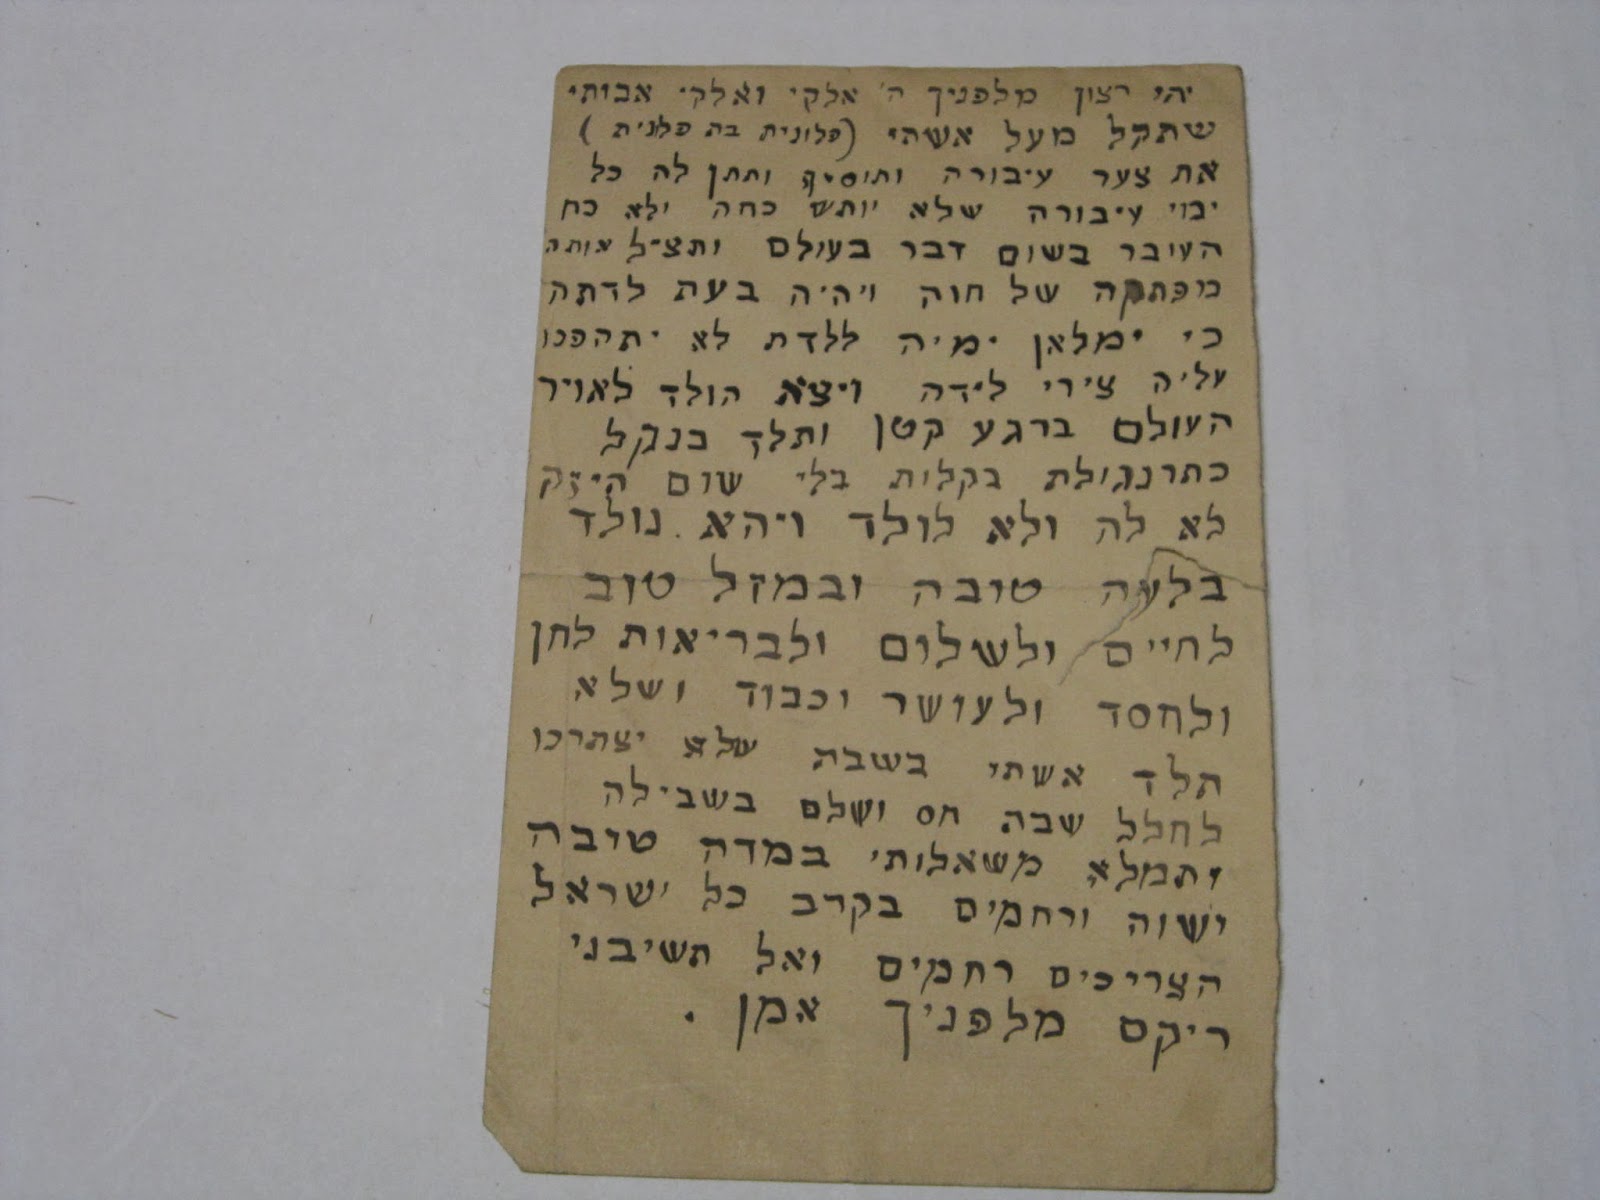 יהי רצון מלפניך ה' אלקי ואלקי אבותי
שתקל מעל אשתי (פלונית בת פלנית)
את צער עיבורה ותוסיף ותתן לה כל
ימי עיבורה שלא יותש כחה ולא כח
העובר בשום דבר בעולם ותציל אותה
מפתקה של חוה ויהיה בעת לדתה
כי ימלאן ימיה ללדת לא יתהפכו
עליה צירי לידה ויצא הולד לאויר
העולם ברגע קטן ותלד בנקל
כתרנגולת בקלות בלי שום היזק
לא לה ולא לולד ויהא נולד
טובה ובמזל טוב
לחיים ולשלום ולבריאות לחן
ולחסד ולעושר וכבוד ושלא
תלד אשתי בשבת שלא יצתרכו
לחלל שבת חס ושלם בשבילה
ותמלא משאלותי במדה טובה
ישוה ורחמים בקרב כל ישראל
הצריכים רחמים ואל תשיבני
ריקם מלפניך אמן .